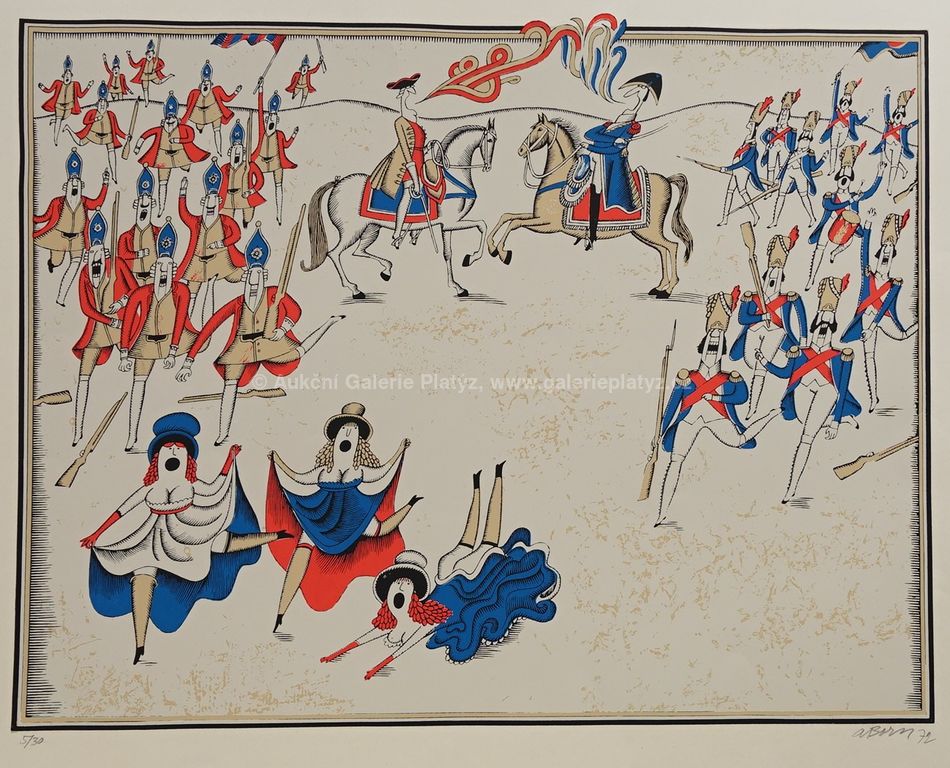 © Aukční Galerie Platýz, www.galerieplatyz.
5/30
ABorn 72